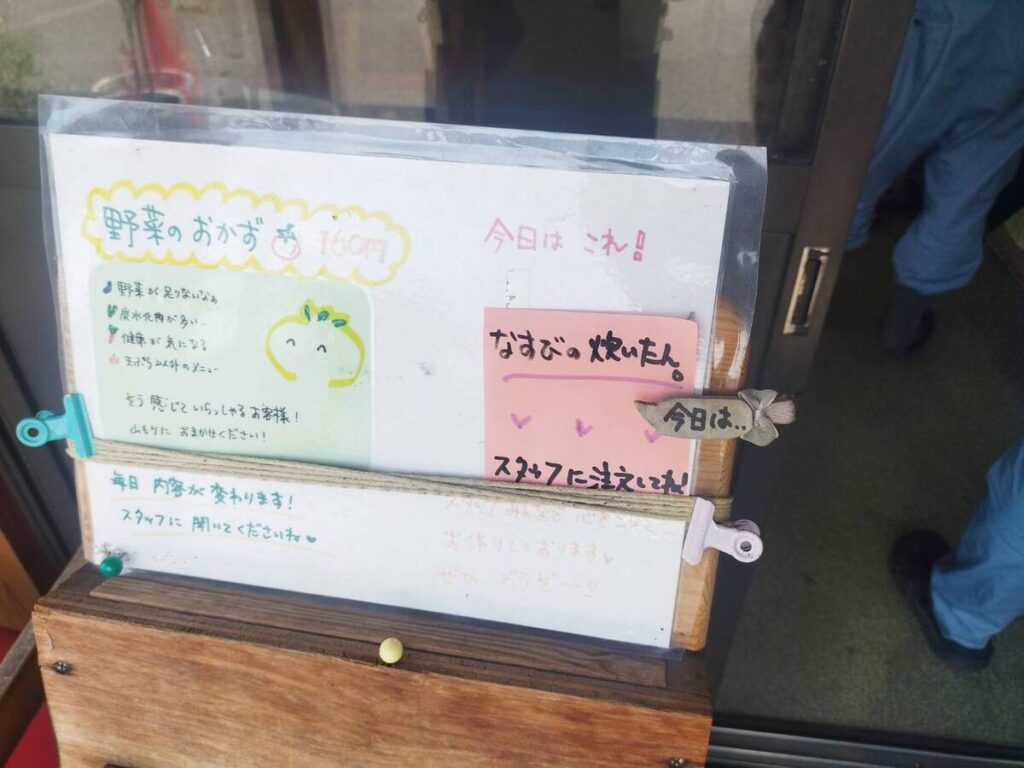 野菜のおかず 160円
野菜が足りないなぁ
炭水化物が多い…
健康が気になる
以外のメニュー
そう感じていらっしゃるお客様!
山もりにおまかせください!
毎日 内容が変わります!
スタッフに 聞いてくださいね♥
今日は これ!
なすびの 炊いたん。
今日は..
スタッフに注文してね!
スタッフみんなで 心をこめて
お作りしております♥
ぜひ どうぞー!!